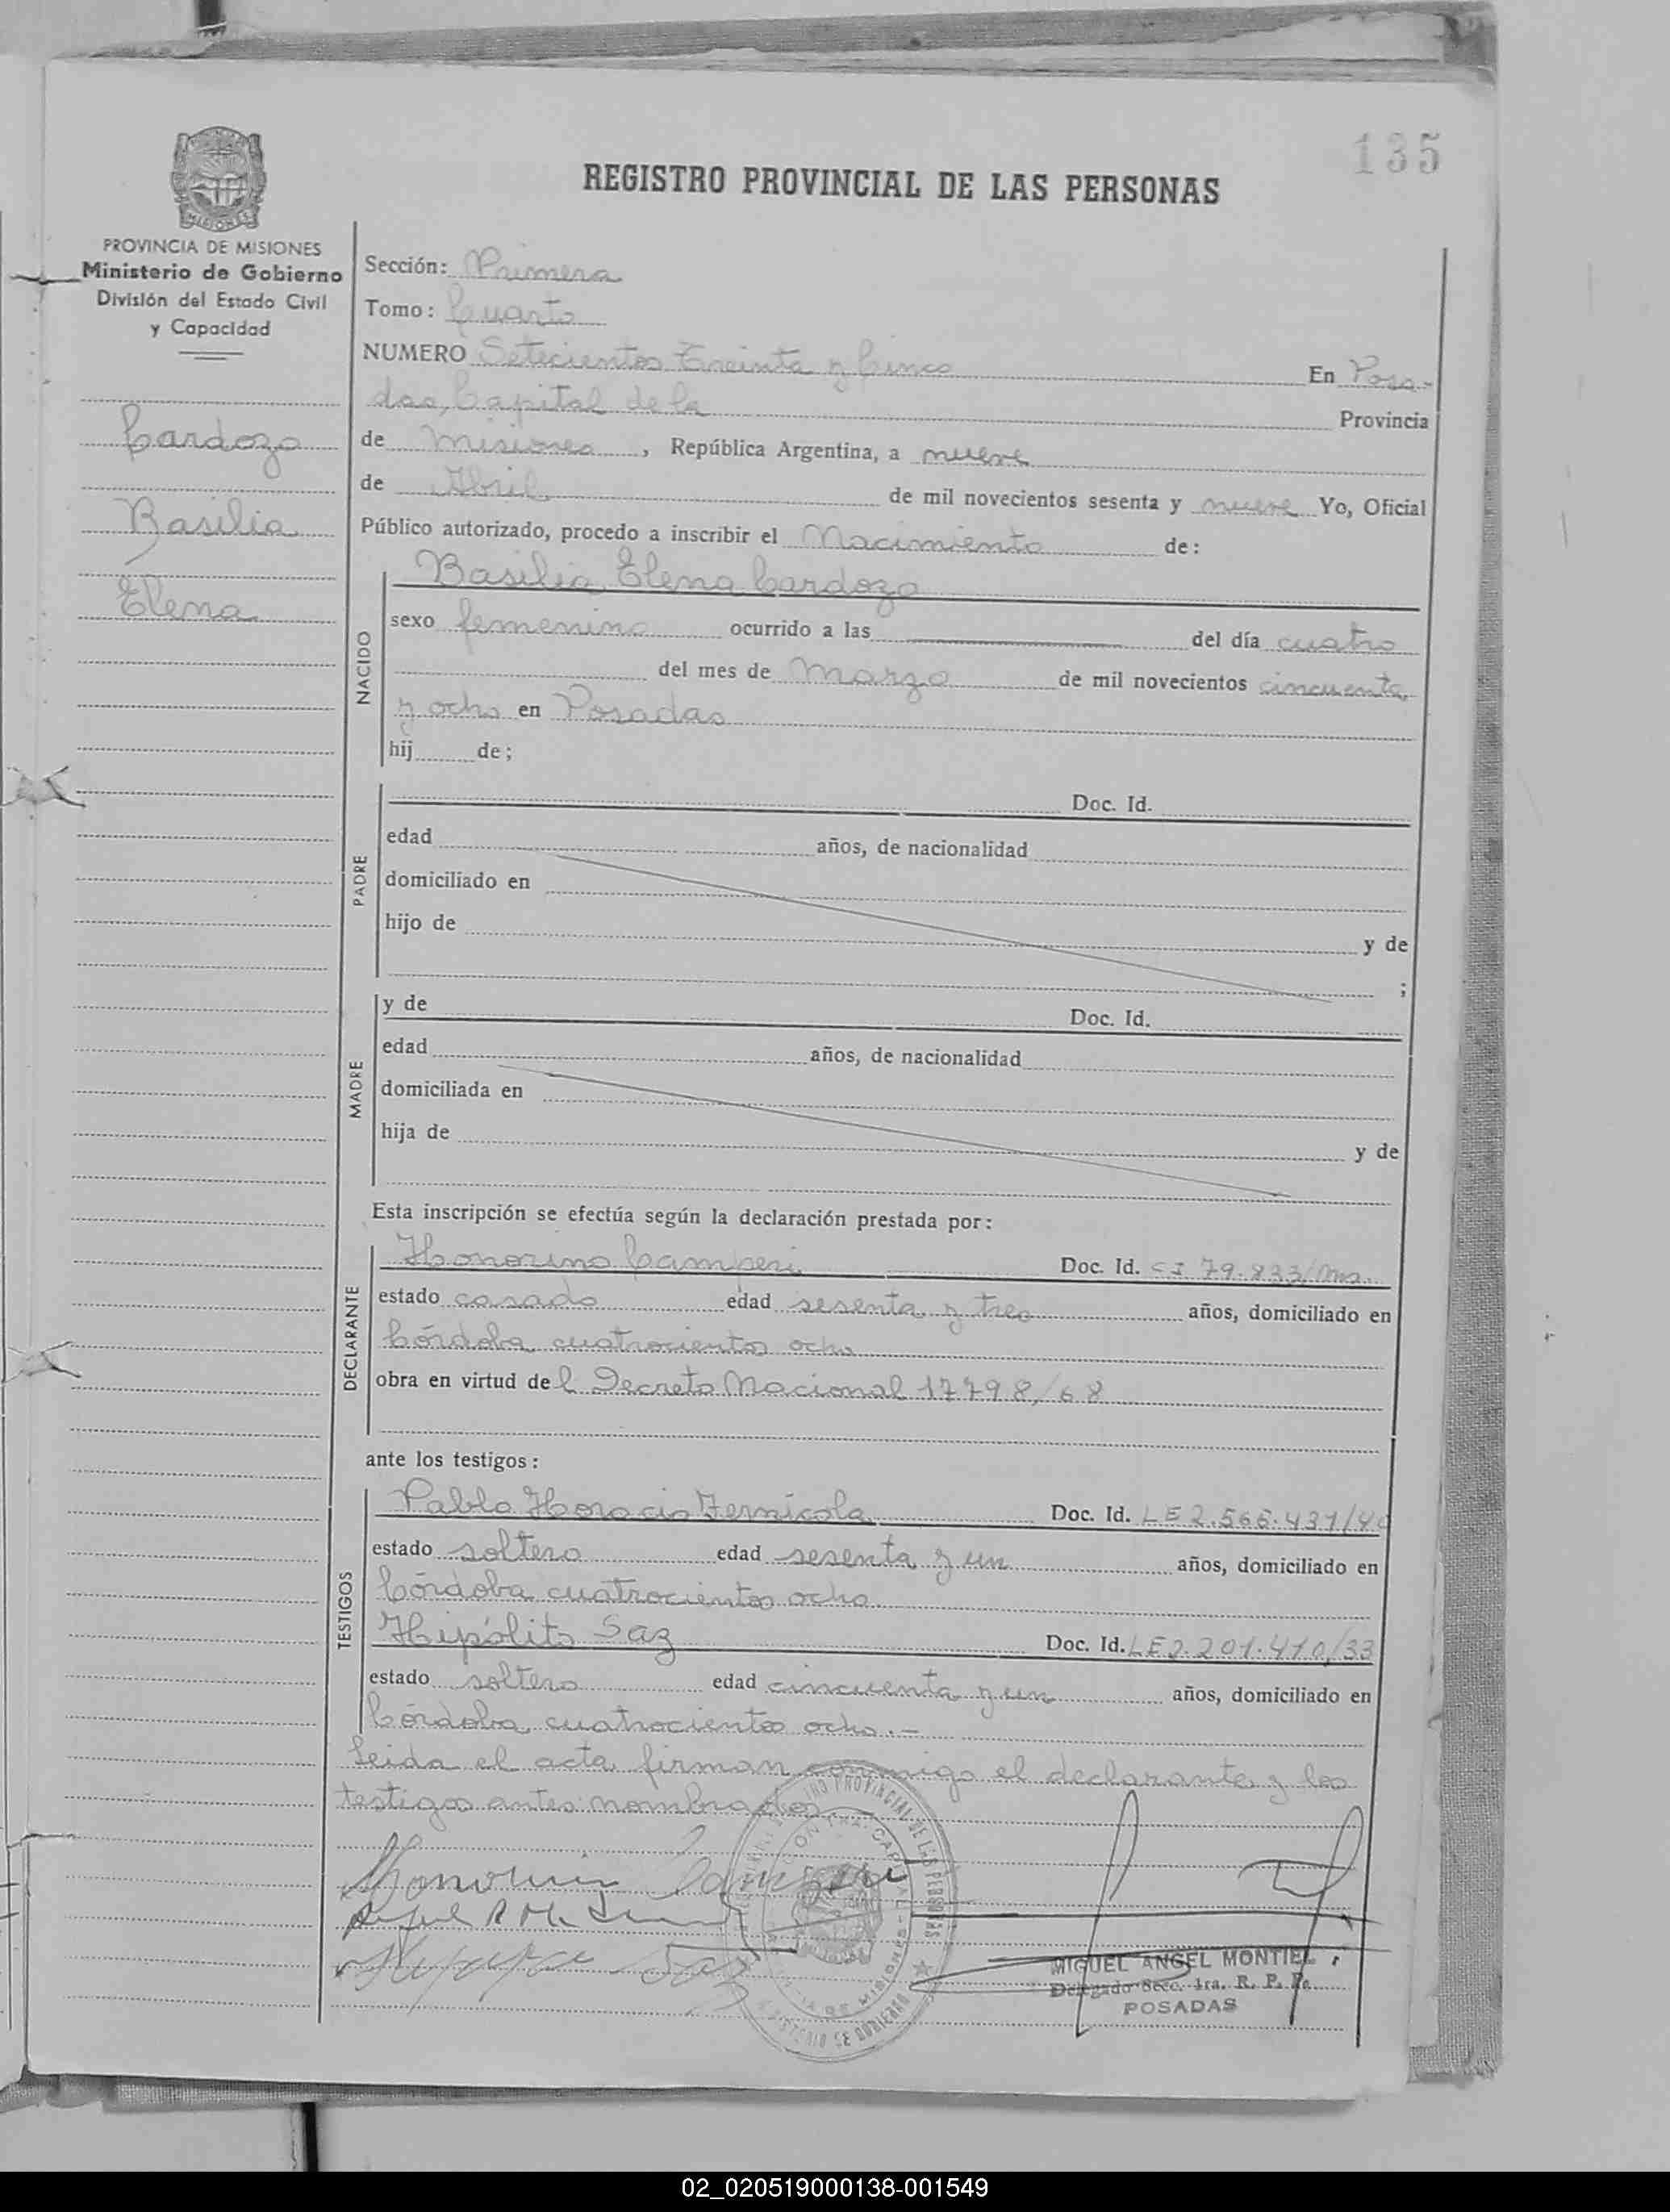 135
REGISTRO PROVINCIAL DE LAS PERSONAS
PROVINCIA DE MISIONES
Ministerio de Gobierno
División del Estado Civil
y Capacidad
Cardozo
Basilia
Elena
Sección: Primera
Tomo: Cuarto
NUMERO Setecientos Treinta y Cinco En Posa-
das, Capital de la Provincia
de Misiones, República Argentina, a nueve
de Abril de mil novecientos sesenta y nueve Yo, Oficial
Público autorizado, procedo a inscribir el Nacimiento de:
NACIDO
Basilia Elena Cardozo
sexo femenino ocurrido a las del día cuatro
del mes de Marzo de mil novecientos cincuenta
y ocho en Posadas
hij de;
PADRE
Doc. Id.
edad años, de nacionalidad
domiciliado en
hijo de y de
;
MADRE
y de Doc. Id.
edad años, de nacionalidad
domiciliada en
hija de y de
Esta inscripción se efectúa según la declaración prestada por:
DECLARANTE
Honorino Camperi Doc. Id. CI 79.833/Mna.
estado casado edad sesenta y tres años, domiciliado en
Córdoba cuatrocientos ocho
obra en virtud del Decreto Nacional 17798/68
ante los testigos:
TESTIGOS
Pablo Horacio Fernícola Doc. Id. LE 2.566.431/40
estado soltero edad sesenta y un años, domiciliado en
Córdoba cuatrocientos ocho
Hipólito Saz Doc. Id. LE 2.201.410/33
estado soltero edad cincuenta y un años, domiciliado en
Córdoba cuatrocientos ocho.-
Leida el acta firman conmigo el declarante y los
testigos antes nombrados
Honorino Camperi
Saz
MIGUEL ANGEL MONTIEL
Delegado Secc. 1ra. R. P. Ps.
POSADAS
02_020519000138-001549